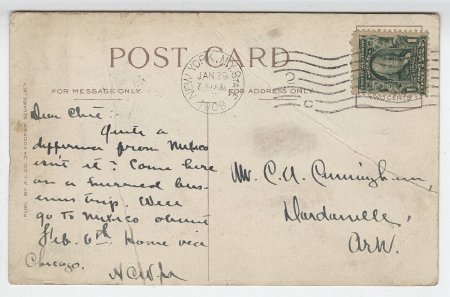 POST CARD
FOR MESSAGE ONLY
FOR ADDRESS ONLY
NEW YORK, N.Y. STA.
JAN 29
7 30 AM
1908
2
C
Dear Chue:
Quite a
difference from Mexico
isn't it? Came here
on a hurried bus-
iness trip. Will
go to Mexico about
Feb. 6th. Home via
Chicago.
N.C.W. Jr
Mr. C. A. Cunningham,
Dardanelle,
Ark.
PUBL. BY A. L. CO. 34 COOPER SQUARE, N.Y.